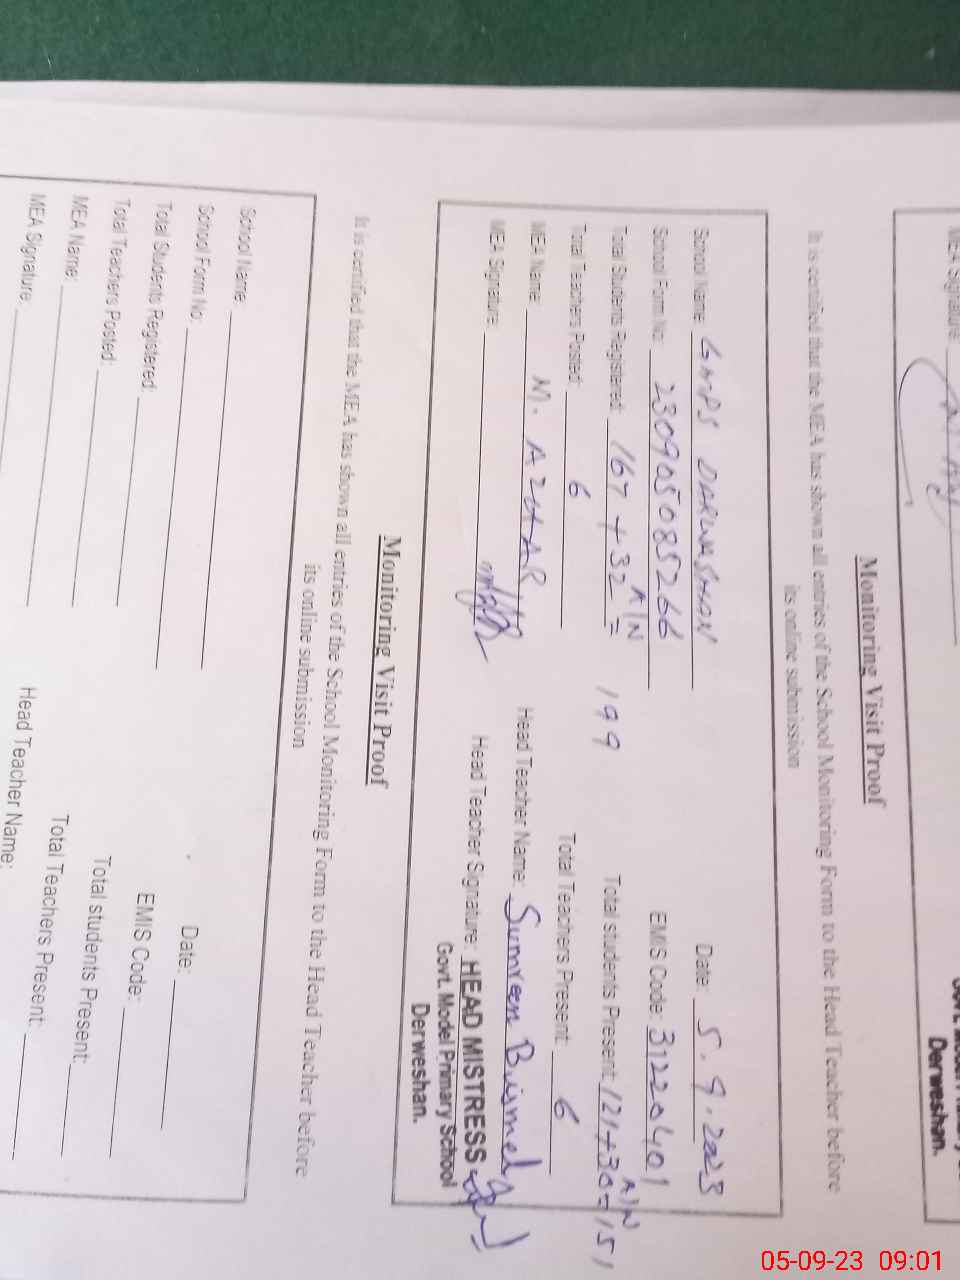 MEA Signature:
Govt. Model Primary
Derweshan.
Monitoring Visit Proof
It is certified that the MEA has shown all entries of the School Monitoring Form to the Head Teacher before
its online submission
School Name: GMPS DARWASHAN Date: 5.9.2023
School Form No: 230905085266 EMIS Code: 31220401
Total Students Registered: 167 + 32 AIN = 199 Total students Present: 121+30 AIN = 151
Total Teachers Posted: 6 Total Teachers Present: 6
MEA Name: M. AZHAR Head Teacher Name: Sumreen
MEA Signature: Head Teacher Signature: HEAD MISTRESS
Govt. Model Primary School
Derweshan.
Monitoring Visit Proof
It is certified that the MEA has shown all entries of the School Monitoring Form to the Head Teacher before
its online submission
School Name: Date:
School Form No: EMIS Code:
Total Students Registered: Total students Present:
Total Teachers Posted: Total Teachers Present:
MEA Name: Head Teacher Name:
MEA Signature:
05-09-23 09:01